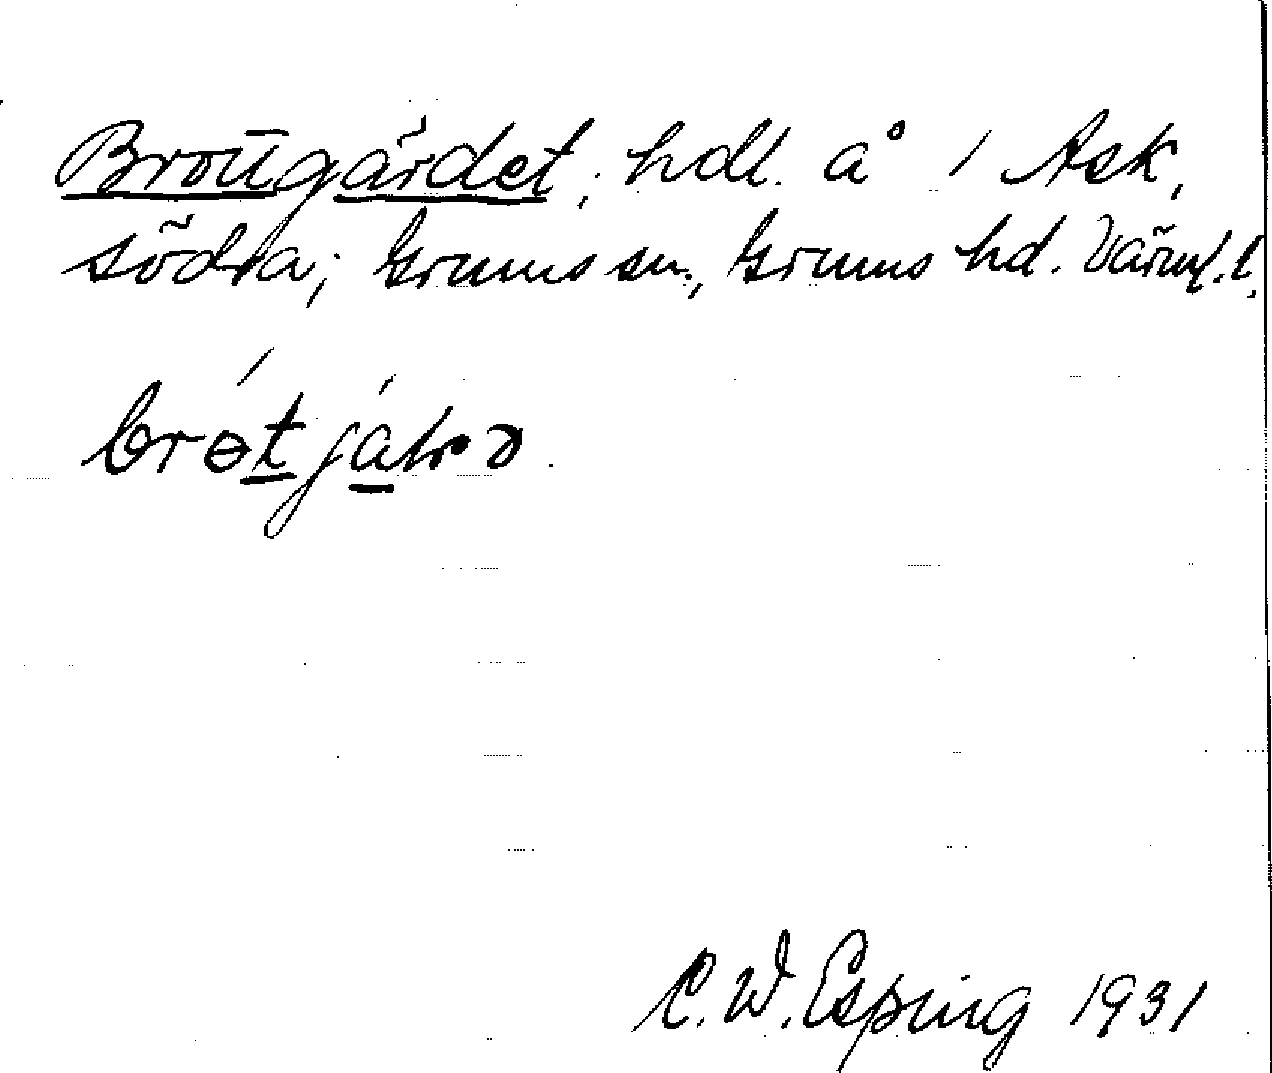 Brottgärdet, hdl. å 1 Ask,
södra; Grums sn., Grums hd. Värml. l.
C. W. Esping 1931